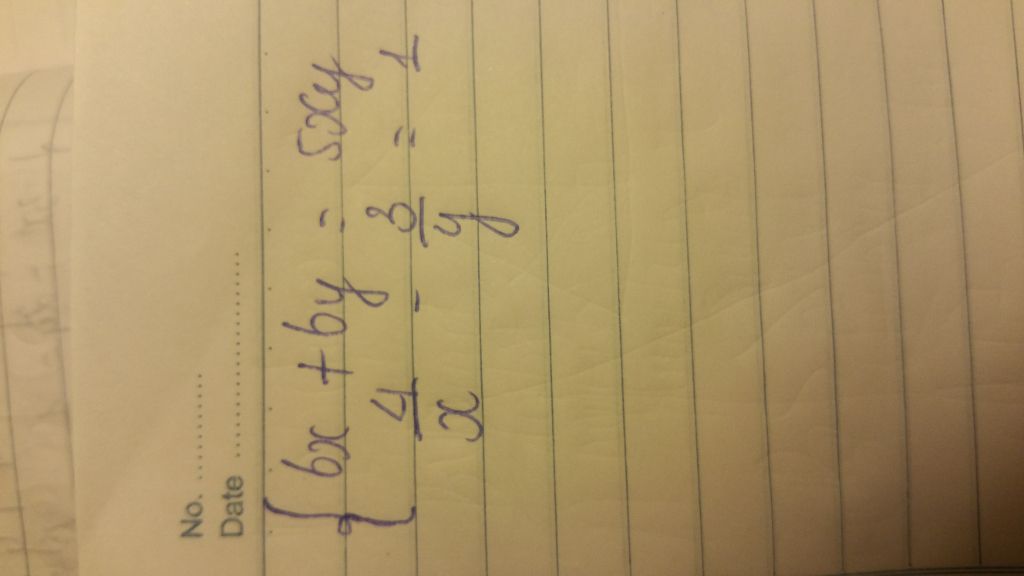 No. ..........
Date ....................
{ 6x + 6y = 5xy
4/x - 3/y = 1